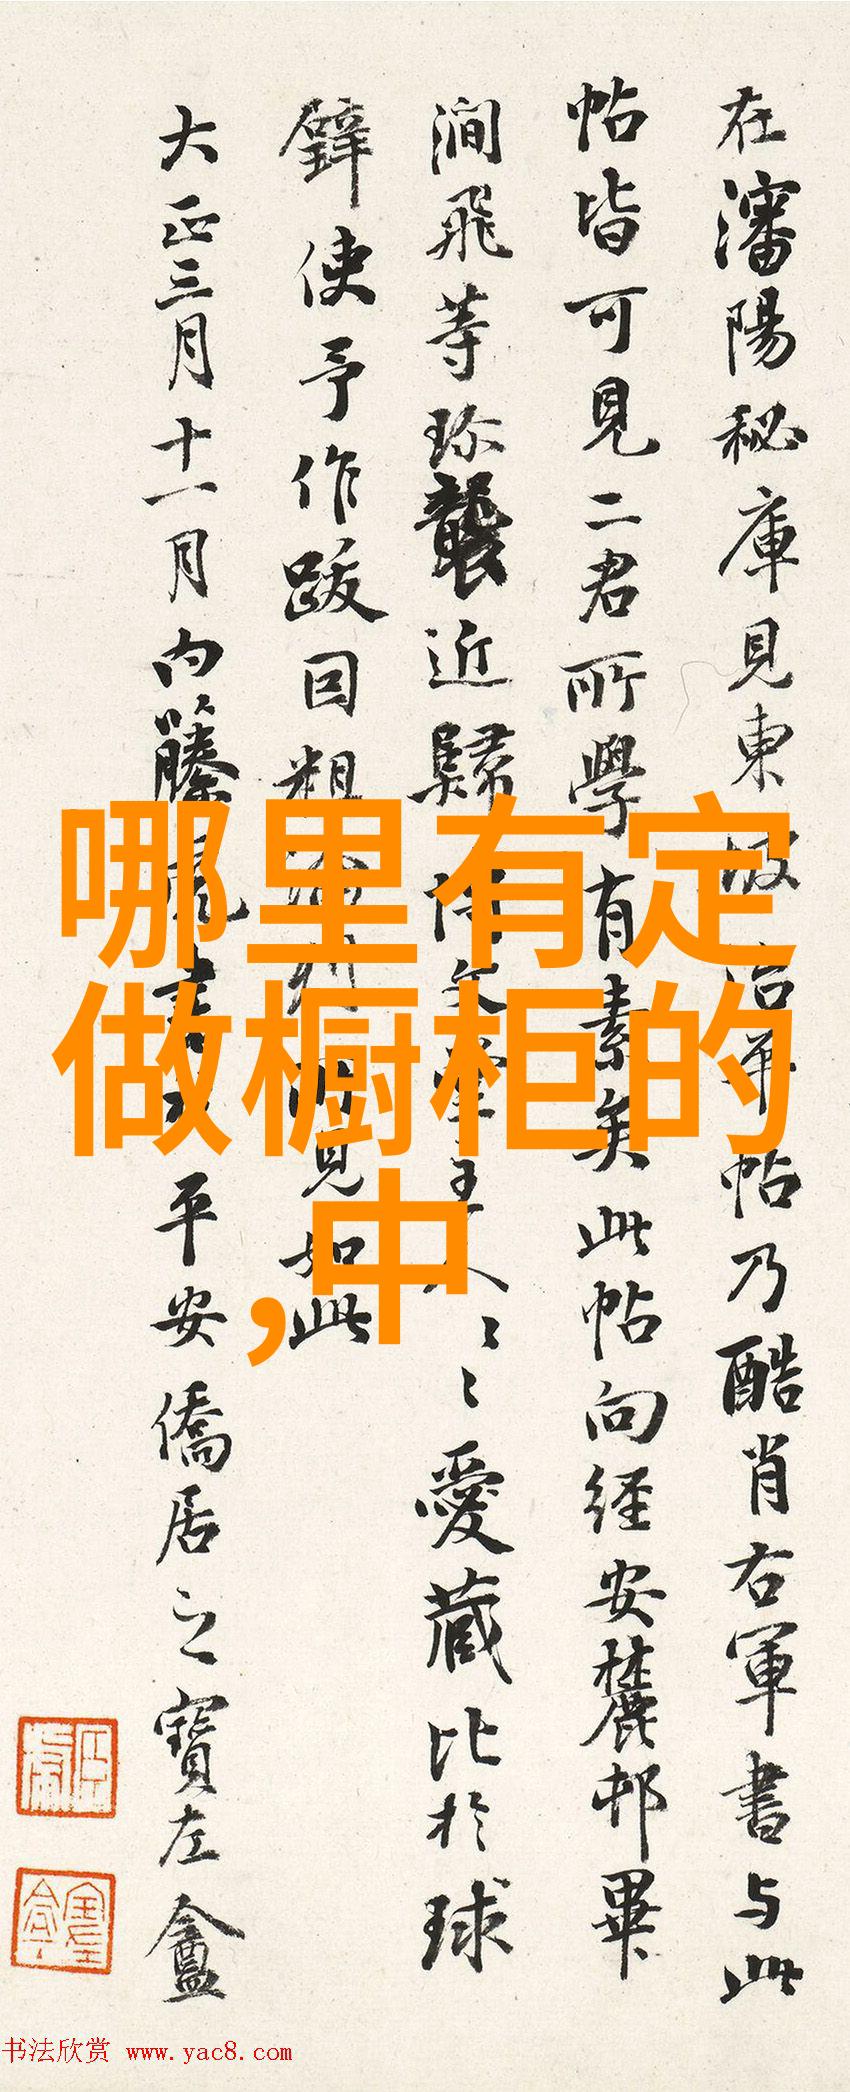 在瀋陽秘庫見東坡治平帖乃酷肖右軍書与此
帖皆可見二君所學有素矣此帖向経安麓邨畢
澗飛等珎襲近歸 文堂主人〻愛蔵比於球
鐸使予作跋因粗 所見如此
大正三月十一月内籐 書 平安僑居之寶左盦
哪里有定
做橱柜的
,中
书法欣赏 www.yac8.com